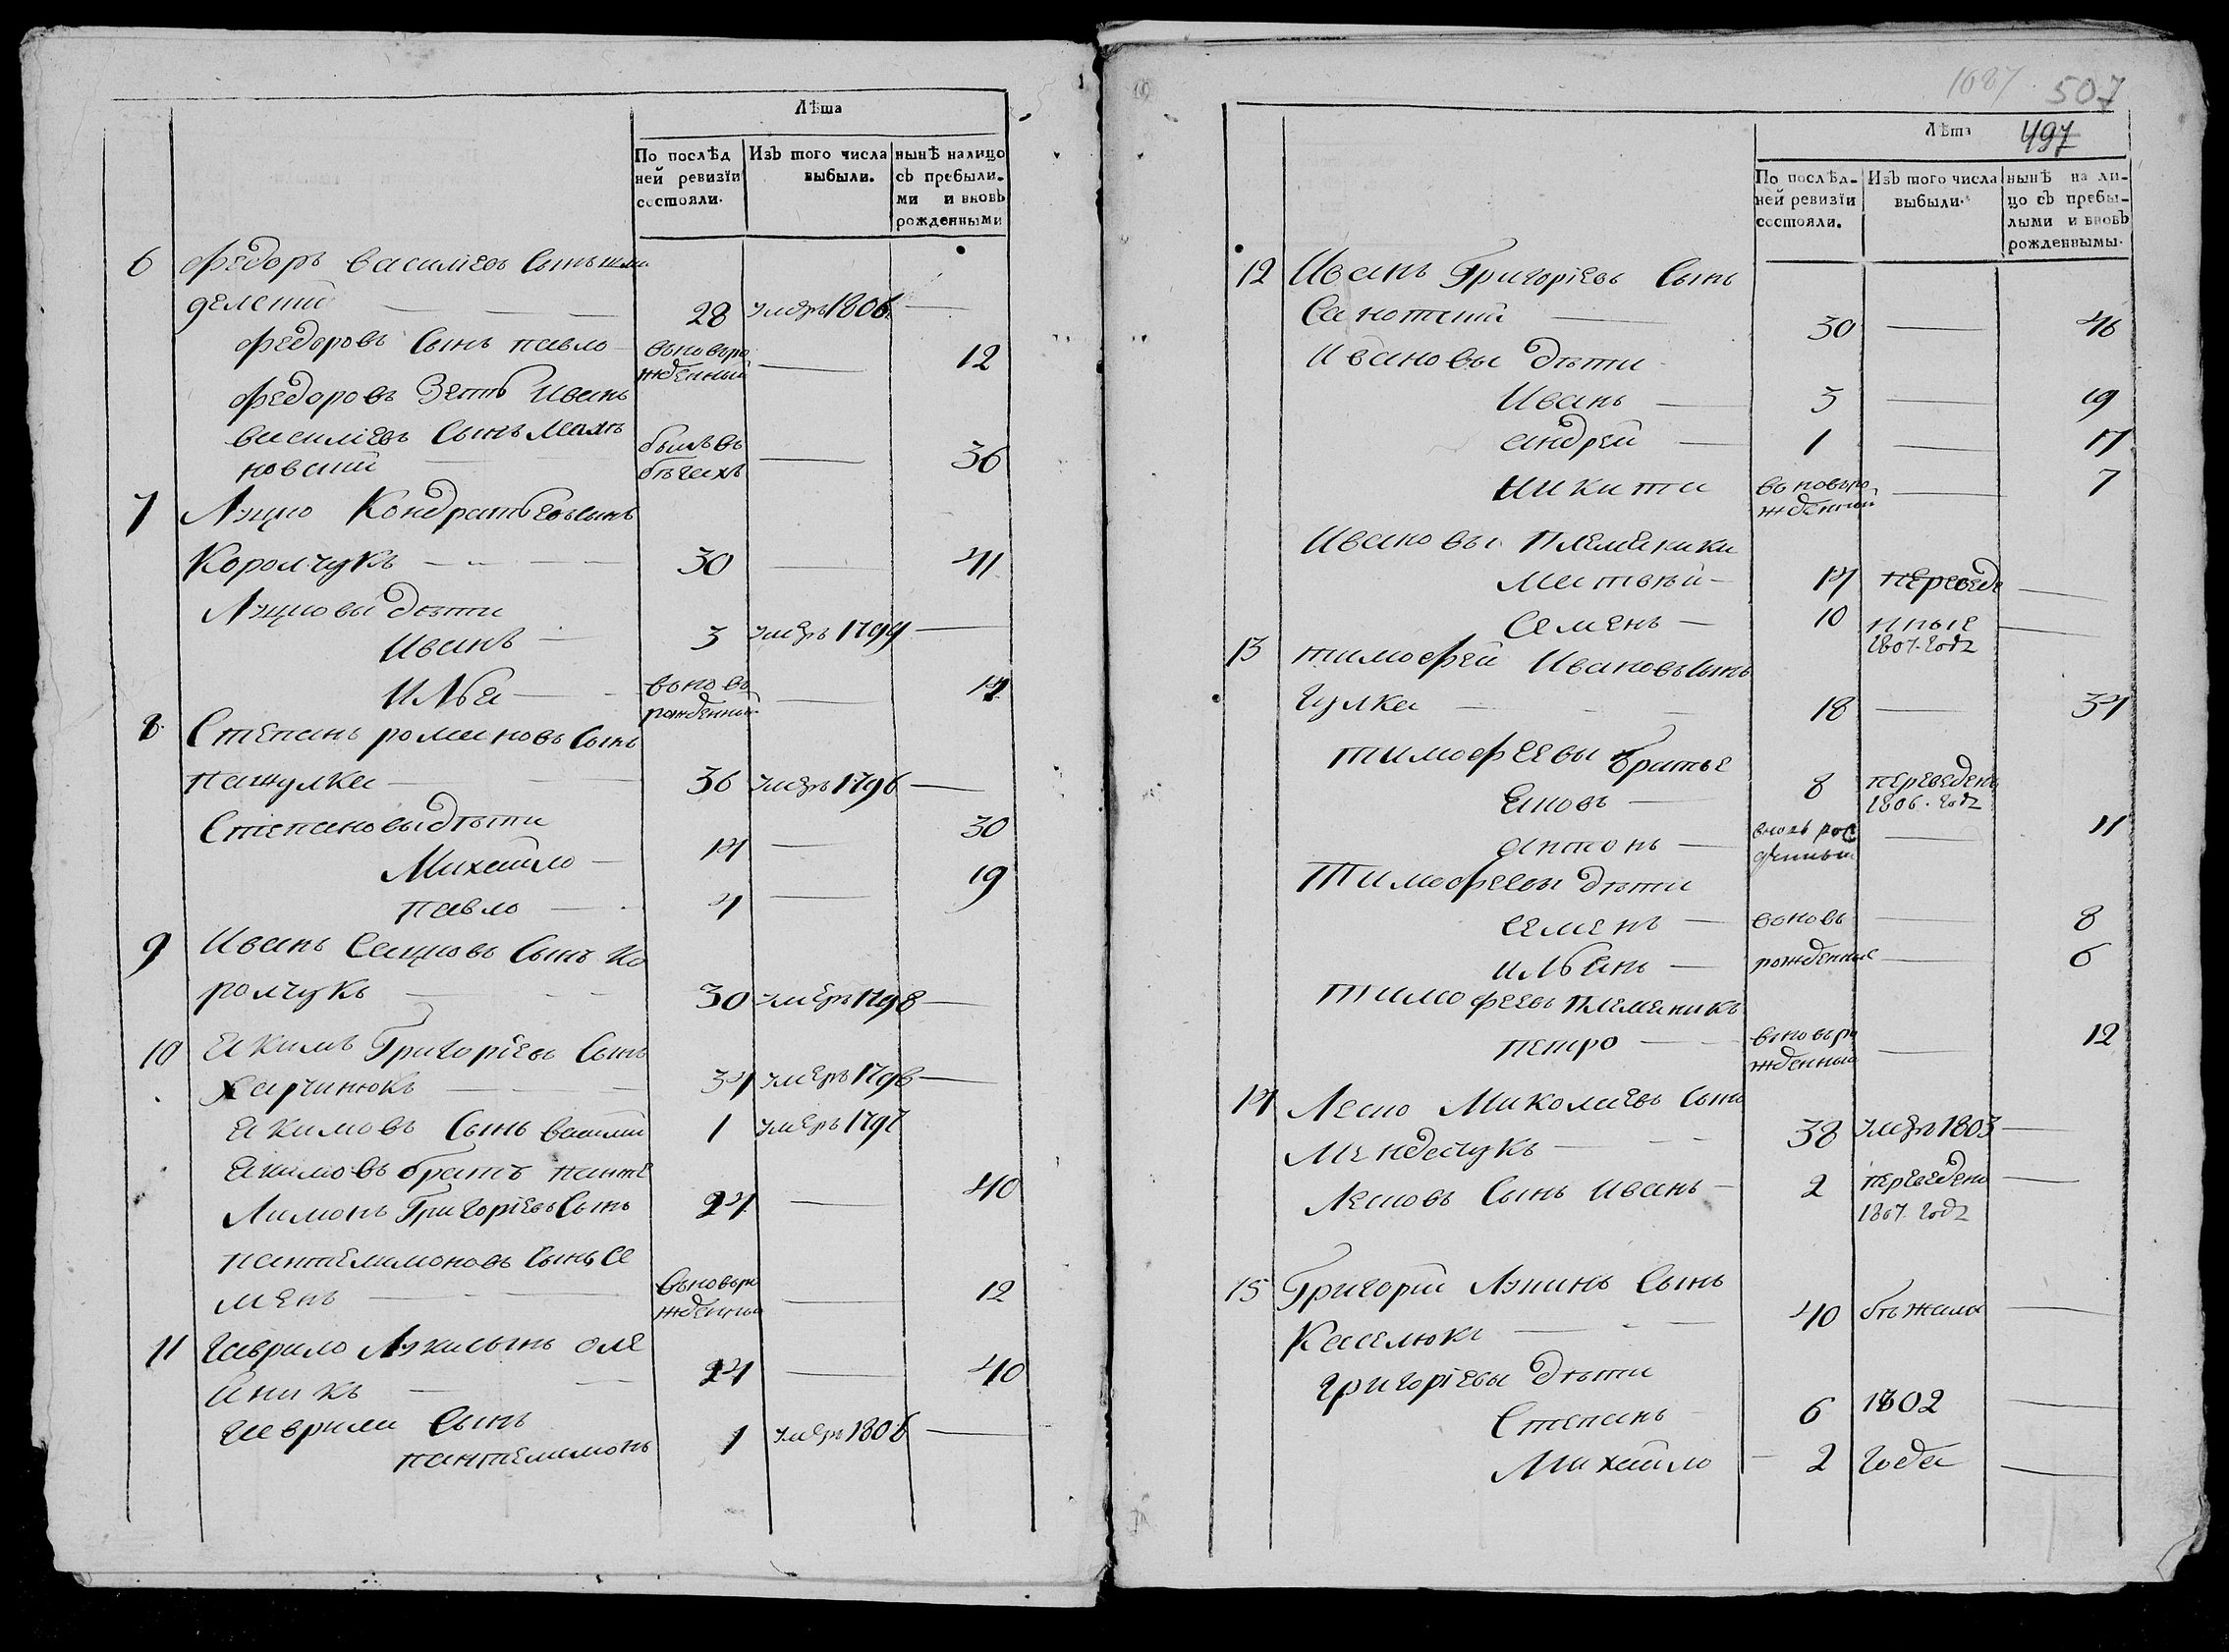 Лѣта
По послѣд
ней ревизїи
состояли.
Изъ того числа
выбыли.
нынѣ налицо
съ пребыли-
ми и вновь
рожденными
6 Федоръ Василіевъ Сынъ
28 умеръ 1806 —
Федоровъ Сынъ павло вьновьро
жденный — 12
Федоровъ Зеть Иванъ
василіевъ Сынъ Мали
новскии былъ въ
бѣгахъ — 36
7 Лэцко Кондратьевъ сынъ
Королчукъ — 30 — 41
Лэцковы дѣти
Иванъ — 3 умеръ 1799 —
Илья — воново
рожденный — 14
8 Степанъ романовъ Сынъ
пашулка — 36 умеръ 1796 —
Степановы дѣти
Михайло — 14 — 30
павло — 4 — 19
9 Иванъ Сацковъ Сынъ Ко
ролчукъ — 30 умеръ 1798 —
10 Якимъ Григоріевъ Сынъ
Харчинюкъ — 34 умеръ 1796 —
Якимовъ Сынъ василий 1 умеръ 1797
Якимовъ братъ панте
лимонъ Григоріевъ Сынъ 24 — 40
пантелимоновъ Сынъ Се
менъ — вьновьро
жденный — 12
11 Гаврило Лэкисынъ оле
йникъ — 24 — 40
Гаврили Сынъ
пантелимонъ 1 умеръ 1806 —
1687 507
497
Лѣта
По послѣд-
ней ревизїи
состояли.
Изъ того числа
выбыли.
нынѣ на ли-
цо съ пребы-
лыми и вновь
рожденнымы.
12 Иванъ Григоріевъ Сынъ
30 — 46
Ивановы дѣти
Иванъ — 3 — 19
андрей — 1 — 17
Никита воновьро
жденный — 7
Ивановы Племеники
Матвѣй — 14 переведе
Семенъ — 10 нные
1807. годъ —
13 тимофей Ивановъ Сынъ
Гулка — 18 — 34
тимофеевы братье
Яковъ — 8 переведенъ
1806. годъ
антонъ — вновь рож
денный — 11
Тимофеевы дѣти
семенъ — воновь — 8
ильянъ — рожденные — 6
Тимофеевъ племеникъ
петро — вьновьро
жденный — 12
14 Леско Миколаевъ Сынъ
Мендечукъ — 38 умеръ 1803 —
Лесковъ Сынъ Иванъ — 2 переведенъ
1807. годъ —
15 Григорій Лэкинъ Сынъ
Каселюкъ — 40 бѣжала —
григоріевы дѣти
Степанъ 6 1802 —
Михайло — 2 года —